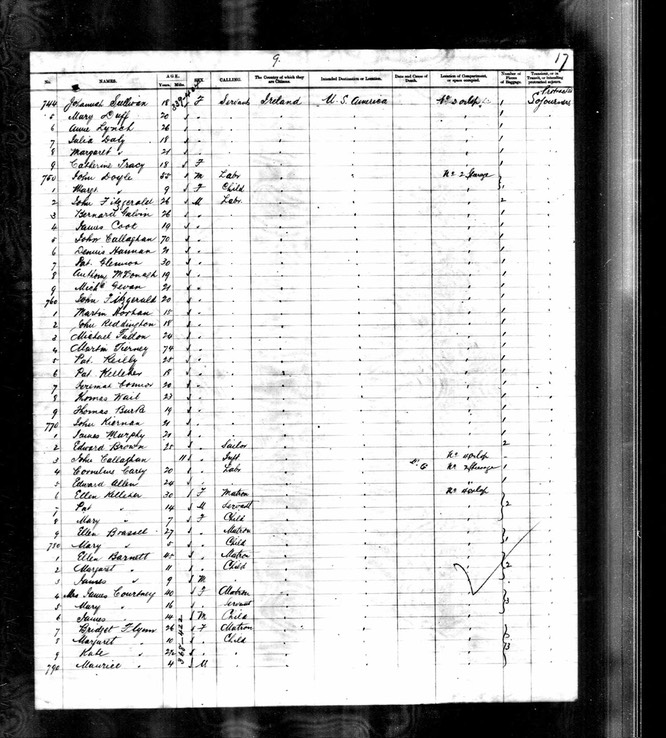 9. 17
No. NAMES. AGE. Years. Mths. SEX. CALLING. The Country of which they are Citizens. Intended Destination or Location. Date and Cause of Death. Location of Compartment, or space occupied. Number of Pieces of Baggage. Transient, or in Transit, or intending protracted sojourn.
744 Johannah Sullivan 18 F Servant Ireland U. S. America No 3 orlop 1 Sojourners
5 Mary Duff 20 1
6 Anne Lynch 26 1
7 Julia Daly 18 1
8 Margaret " 21 1
9 Catherine Tracy 18 F 1
750 John Doyle 55 M Labr No 2 Steerage
1 Margt " 9 F Child 1
2 John Fitzgerald 26 M Labr 2
3 Bernard Galvin 26 1
4 James Coot 19 1
5 John Callaghan 70 1
6 Dennis Hannan 21 1
7 Pat Glennon 30 1
8 Anthony McDonagh 19 1
9 Michl Gevan 21 1
760 John Fitzgerald 20 1
1 Martin Hoohan 15 1
2 John Reddington 18 1
3 Michael Fallon 24 1
4 Martin Tierney 74 1
5 Pat Reilly 25 1
6 Pat Kelleher 18 1
7 Jeremiah Connor 20 1
8 Thomas Wait 23 1
9 Thomas Burke 19 1
770 John Kiernan 21 1
1 James Murphy 20 1
2 Edward Brown 25 Sailor 2
3 John Callaghan 11 Inft No 4 orlop -
4 Cornelius Carey 20 Labr No 2 Steerage 1
5 Edward Allen 24 1
6 Ellen Kelleher 30 F Matron No 4 orlop
7 Pat " 14 M Servant 2
8 Mary " 7 F Child
9 Ellen Brassell 27 Matron
780 Mary " 5 Child 1
1 Ellen Barnett 45 Matron
2 Margaret " 11 Child 2
3 James " 9 M
4 Mrs James Courtney 40 F Matron
5 Mary " 16 Servant 3
6 James " 14 M Child
7 Bridget Flynn 26 F Matron
8 Margaret " 10 Child 3
9 Kate "
790 Maurice " 4 M